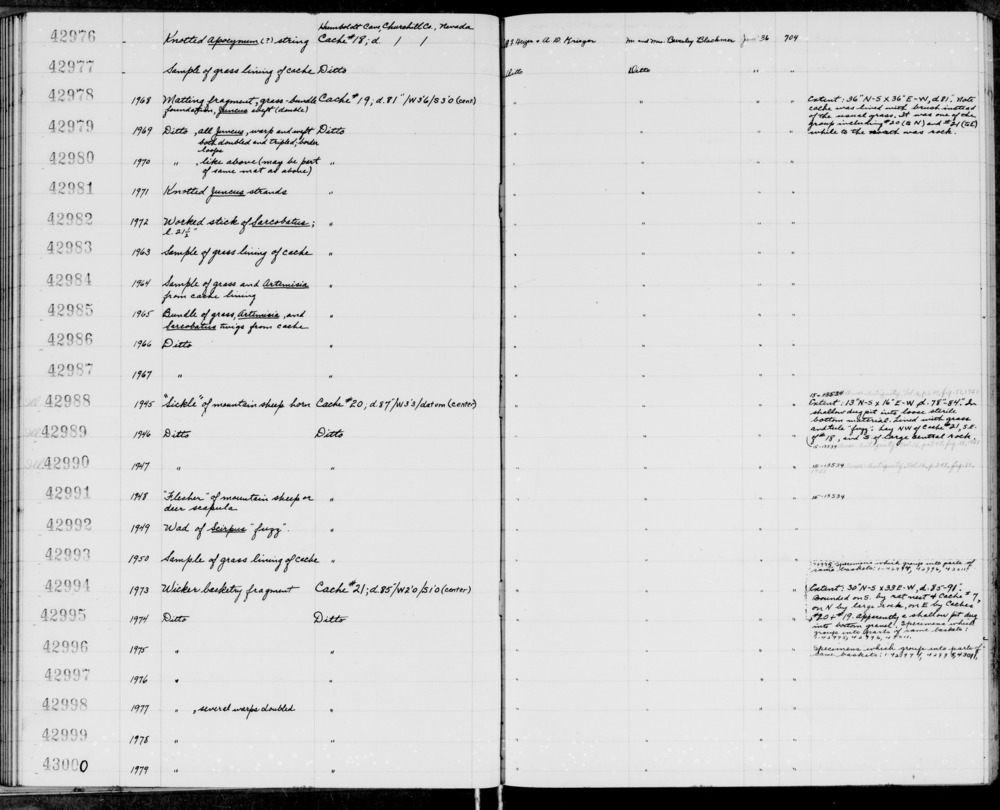 Humboldt Cave, Churchill Co., Nevada
42976 Knotted Apocynum (?) string Cache #18; d / / R.F. Heizer & A.D. Krieger Mr and Mrs. Beverly Blackmer June '36 704
42977 Sample of grass lining of cache Ditto Ditto Ditto " "
42978 1968 Matting fragment, grass-bundle Cache #19; d. 81"/W3'6/S3'0 (cent) " " " " Extent: 36" N-S x 36" E-W, d. 81". Note
foundation, Juncus weft (double) cache was lined with brush instead
of the usual grass. It was one of the
42979 1969 Ditto, all Juncus, warp and weft Ditto " " " " group including #20 (to N) and #21 (to E)
both doubled and tripled; border while to the south was rock.
loops
42980 1970 " , like above (may be part " " " " "
of same mat as above)
42981 1971 Knotted Juncus strands " " " " "
42982 1972 Worked stick of Sarcobatus; " " " " "
l. 21½"
42983 1963 Sample of grass lining of cache " " " " "
42984 1964 Sample of grass and Artemisia " " " " "
from cache lining
42985 1965 Bundle of grass, Artemisia, and " " " " "
Sarcobatus twigs from cache
42986 1966 Ditto " " " " "
42987 1967 " " " " " "
15-13534
42988 1945 "Sickle" of mountain sheep horn Cache #20; d. 87"/W3'3/datum (center) " " " " Extent: 13" N-S x 16" E-W, d. 78-84". In
shallow dug pit into loose sterile
bottom material. Lined with grass
42989 1946 Ditto Ditto " " " " and tule "fuzz". Lay NW of Cache #21, S.E.
of #18, and S. of large central rock.
15-13534
42990 1947 " " " " " " 15-13534
42991 1948 "Flesher" of mountain sheep or " " " " " 15-13534
deer scapula
42992 1949 Wad of Scirpus "fuzz". " " " " "
42993 1950 Sample of grass lining of cache " " " " "
Specimens which group into parts of
same baskets: 1-42994, 42996, 43011
42994 1973 Wicker basketry fragment Cache #21; d. 85"/W2'0/S1'0 (center) " " " " Extent: 30" N-S x 33 E-W, d. 85-91".
Bounded on S. by rat nest & Cache #7,
on N by large rock, on E by Caches
42995 1974 Ditto Ditto " " " " #20 & #19. Apparently a shallow pit dug
into bottom gravel. Specimens which
group into parts of same baskets:
42996 1975 " " " " " " Specimens which group into parts of
same baskets:
42997 1976 " " " " " "
42998 1977 " , several warps doubled " " " " "
42999 1978 " " " " " "
43000 1979 " " " " " "